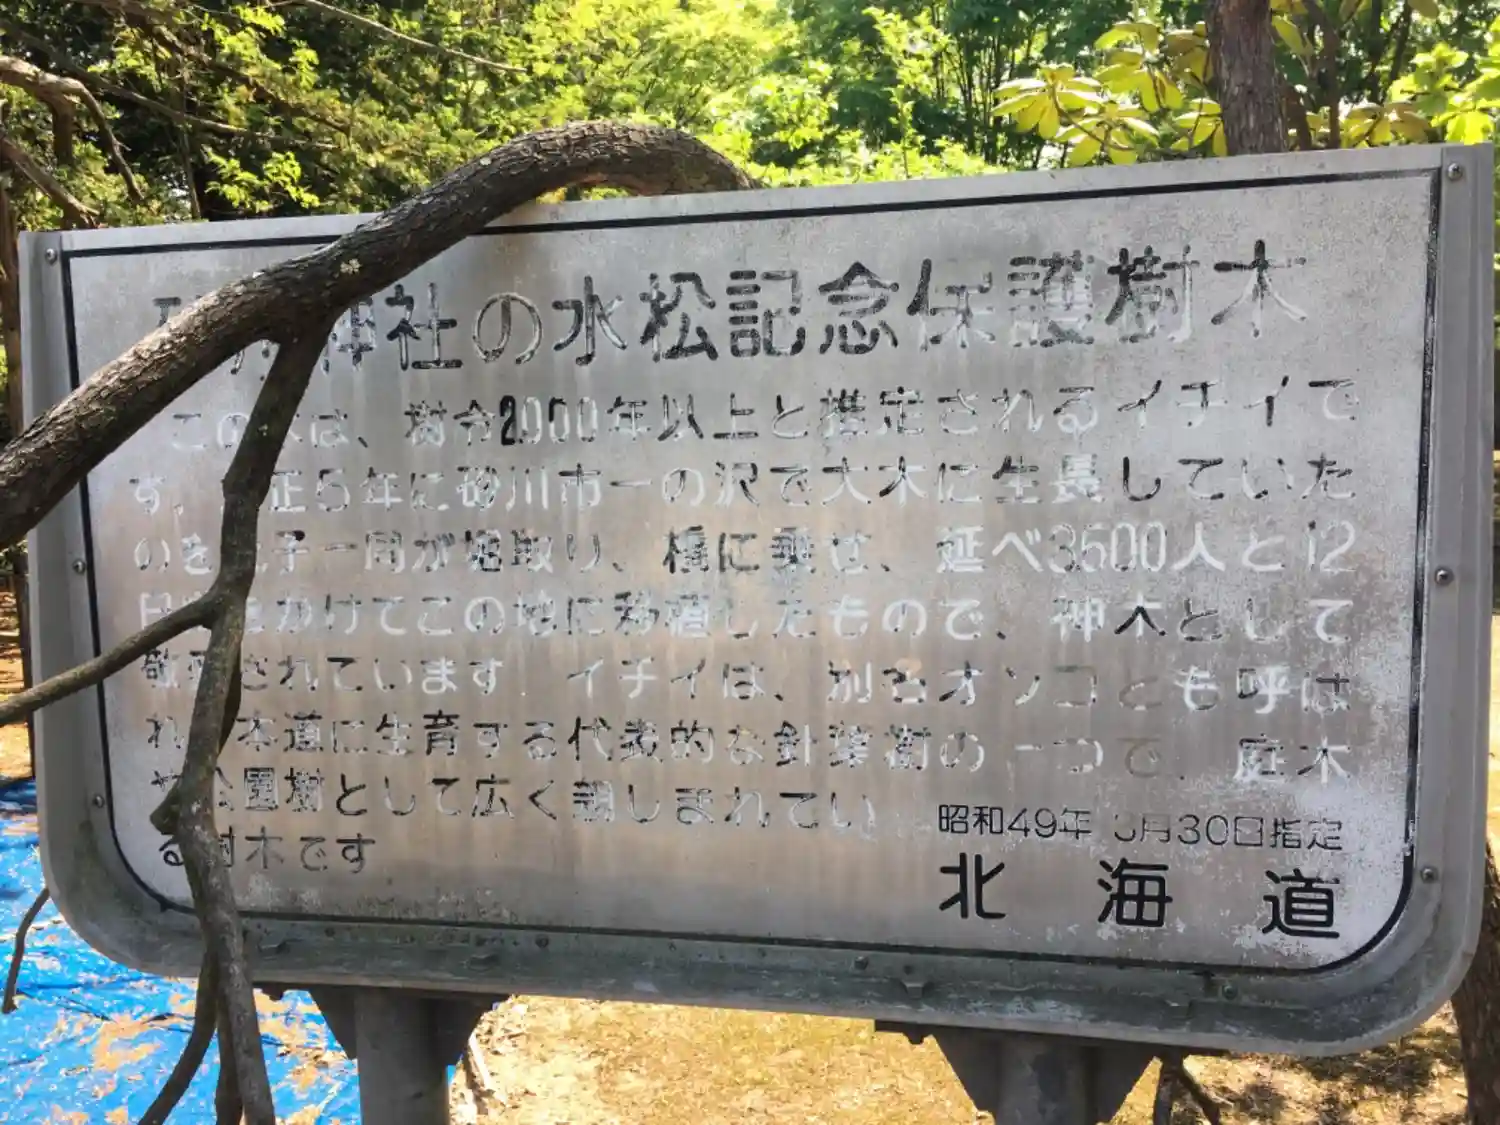 神社の水松記念保護樹木
この木は、樹令2000年以上と推定されるイチイで
す。 正5年に砂川市一の沢で大木に生長していた
のを 子一同が堀取り、橇に乗せ、延べ3500人と12
日 をかけてこの地に移植したもので、神木として
敬 されています. イチイは、別名オンコとも呼は
れ 本道に生育する代表的な針葉樹の一つで、庭木
や公園樹として広く親しまれてい
る樹木です
昭和49年 月30日指定
北海道